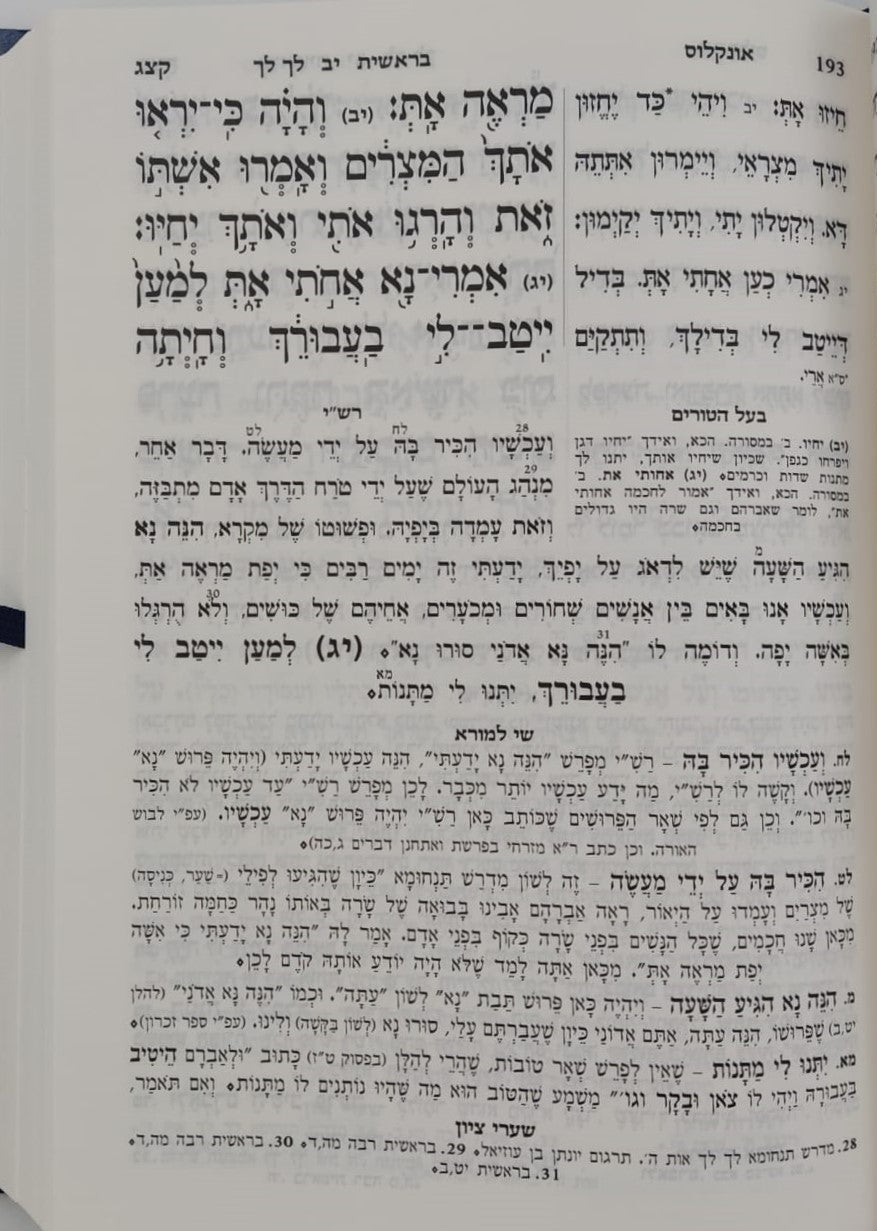 193
אונקלוס
בראשית יב לך לך
קצג
מַרְאֶ֖ה אָֽתְּ׃ (יב) וְהָיָ֗ה כִּֽי־יִרְא֤וּ
אֹתָךְ֙ הַמִּצְרִ֔ים וְאָמְר֖וּ אִשְׁתּ֣וֹ
זֹ֑את וְהָרְג֥וּ אֹתִ֖י וְאֹתָ֥ךְ יְחַיּֽוּ׃
(יג) אִמְרִי־נָ֖א אֲחֹ֣תִי אָ֑תְּ לְמַ֙עַן֙
יִֽיטַב־לִ֣י בַעֲבוּרֵ֔ךְ וְחָיְתָ֥ה
חֵיזוּ אָתְּ׃ יב וִיהֵי *כַּד יֶחֱזוּן
יָתִיךְ מִצְרָאֵי, וְיֵימְרוּן אִתְּתֵהּ
דָּא. וְיִקְטְלוּן יָתִי, וְיָתִיךְ יְקַיְמוּן׃
יג אִמְרִי כְעַן אֲחָתִי אָתְּ. בְּדִיל
דְּיֵיטַב לִי בְּדִילָךְ, וְתִתְקַיַּם
יס״א אֲרֵי.
בעל הטורים
(יב) יחיו. ב׳ במסורה. הכא, ואידך ״יחיו דגן
ויפרחו כגפן״. שכיון שיחיו אותך, יתנו לך
מתנות שדות וכרמים׃ (יג) אחותי את. ב׳
במסורה. הכא, ואידך ״אמור לחכמה אחותי
את״, לומר שאברהם וגם שרה היו גדולים
בחכמה׃
רש״י
28 לח לט
וְעַכְשָׁיו הִכִּיר בָּהּ עַל יְדֵי מַעֲשֶׂה. דָּבָר אַחֵר,
29
מִנְהַג הָעוֹלָם שֶׁעַל יְדֵי טֹרַח הַדֶּרֶךְ אָדָם מִתְבַּזֶּה,
וְזֹאת עָמְדָה בְּיָפְיָהּ. וּפְשׁוּטוֹ שֶׁל מִקְרָא, הִנֵּה נָא
מ
הִגִּיעַ הַשָּׁעָה שֶׁיֵּשׁ לִדְאֹג עַל יָפְיֵךְ, יָדַעְתִּי זֶה יָמִים רַבִּים כִּי יְפַת מַרְאֶה אַתְּ,
30
וְעַכְשָׁיו אָנוּ בָּאִים בֵּין אֲנָשִׁים שְׁחוֹרִים וּמְכֹעָרִים, אֲחֵיהֶם שֶׁל כּוּשִׁים, וְלֹא הֻרְגְּלוּ
31
בְּאִשָּׁה יָפָה. וְדוֹמֶה לוֹ ״הִנֶּה נָּא אֲדֹנַי סוּרוּ נָא״׃ (יג) לְמַעַן יִיטַב לִי
מא
בַעֲבוּרֵךְ, יִתְּנוּ לִי מַתָּנוֹת׃
שי למורא
לח. וְעַכְשָׁיו הִכִּיר בָּהּ – רַשִׁ״י מְפָרֵשׁ ״הִנֵּה נָא יָדַעְתִּי״, הִנֵּה עַכְשָׁיו יָדַעְתִּי (וְיִהְיֶה פֵּרוּשׁ ״נָא״
עַכְשָׁיו). וְקָשֶׁה לוֹ לְרַשִׁ״י, מַה יָּדַע עַכְשָׁיו יוֹתֵר מִכְּבָר. לָכֵן מְפָרֵשׁ רַשִׁ״י ״עַד עַכְשָׁיו לֹא הִכִּיר
בָּהּ וכו׳״. וְכֵן גַּם לְפִי שְׁאָר הַפֵּרוּשִׁים שֶׁכּוֹתֵב כָּאן רַשִׁ״י יִהְיֶה פֵּרוּשׁ ״נָא״ עַכְשָׁיו. (עפ״י לבוש
האורה. וכן כתב ר״א מזרחי בפרשת ואתחנן דברים ג,כה)׃
לט. הִכִּיר בָּהּ עַל יְדֵי מַעֲשֶׂה – זֶה לְשׁוֹן מִדְרַשׁ תַּנְחוּמָא ״כֵּיוָן שֶׁהִגִּיעוּ לְפִילֵי (=שַׁעַר, כְּנִיסָה)
שֶׁל מִצְרַיִם וְעָמְדוּ עַל הַיְאוֹר, רָאָה אַבְרָהָם אָבִינוּ בָּבוּאָה שֶׁל שָׂרָה בְּאוֹתוֹ נָהָר כַּחַמָּה זוֹרַחַת.
מִכָּאן שָׁנוּ חֲכָמִים, שֶׁכָּל הַנָּשִׁים בִּפְנֵי שָׂרָה כְּקוֹף בִּפְנֵי אָדָם. אָמַר לָהּ ״הִנֵּה נָא יָדַעְתִּי כִּי אִשָּׁה
יְפַת מַרְאֶה אָתְּ״. מִכָּאן אַתָּה לָמֵד שֶׁלֹּא הָיָה יוֹדֵעַ אוֹתָהּ קֹדֶם לָכֵן׃
מ. הִנֵּה נָא הִגִּיעַ הַשָּׁעָה – וְיִהְיֶה כָּאן פֵּרוּשׁ תֵּבַת ״נָא״ לְשׁוֹן ״עַתָּה״. וּכְמוֹ ״הִנֶּה נָּא אֲדֹנַי״ (להלן
יט,ב) שֶׁפֵּרוּשׁוֹ, הִנֵּה עַתָּה, אַתֶּם אֲדוֹנַי כֵּיוָן שֶׁעֲבַרְתֶּם עָלַי, סוּרוּ נָא (לְשׁוֹן בַּקָּשָׁה) וְלִינוּ. (עפ״י ספר זכרון)׃
מא. יִתְּנוּ לִי מַתָּנוֹת – שֶׁאֵין לְפָרֵשׁ שְׁאָר טוֹבוֹת, שֶׁהֲרֵי לְהַלָּן (בפסוק ט״ז) כָּתוּב ״וּלְאַבְרָם הֵיטִיב
בַּעֲבוּרָהּ וַיְהִי לוֹ צֹאן וּבָקָר וגו׳״ מַשְׁמָע שֶׁהַטּוֹב הוּא מַה שֶּׁהָיוּ נוֹתְנִים לוֹ מַתָּנוֹת׃ וְאִם תֹּאמַר,
שערי ציון
28. מדרש תנחומא לך לך אות ה׳. תרגום יונתן בן עוזיאל׃ 29. בראשית רבה מה,ד׃ 30. בראשית רבה מה,ד׃
31. בראשית יט,ב׃